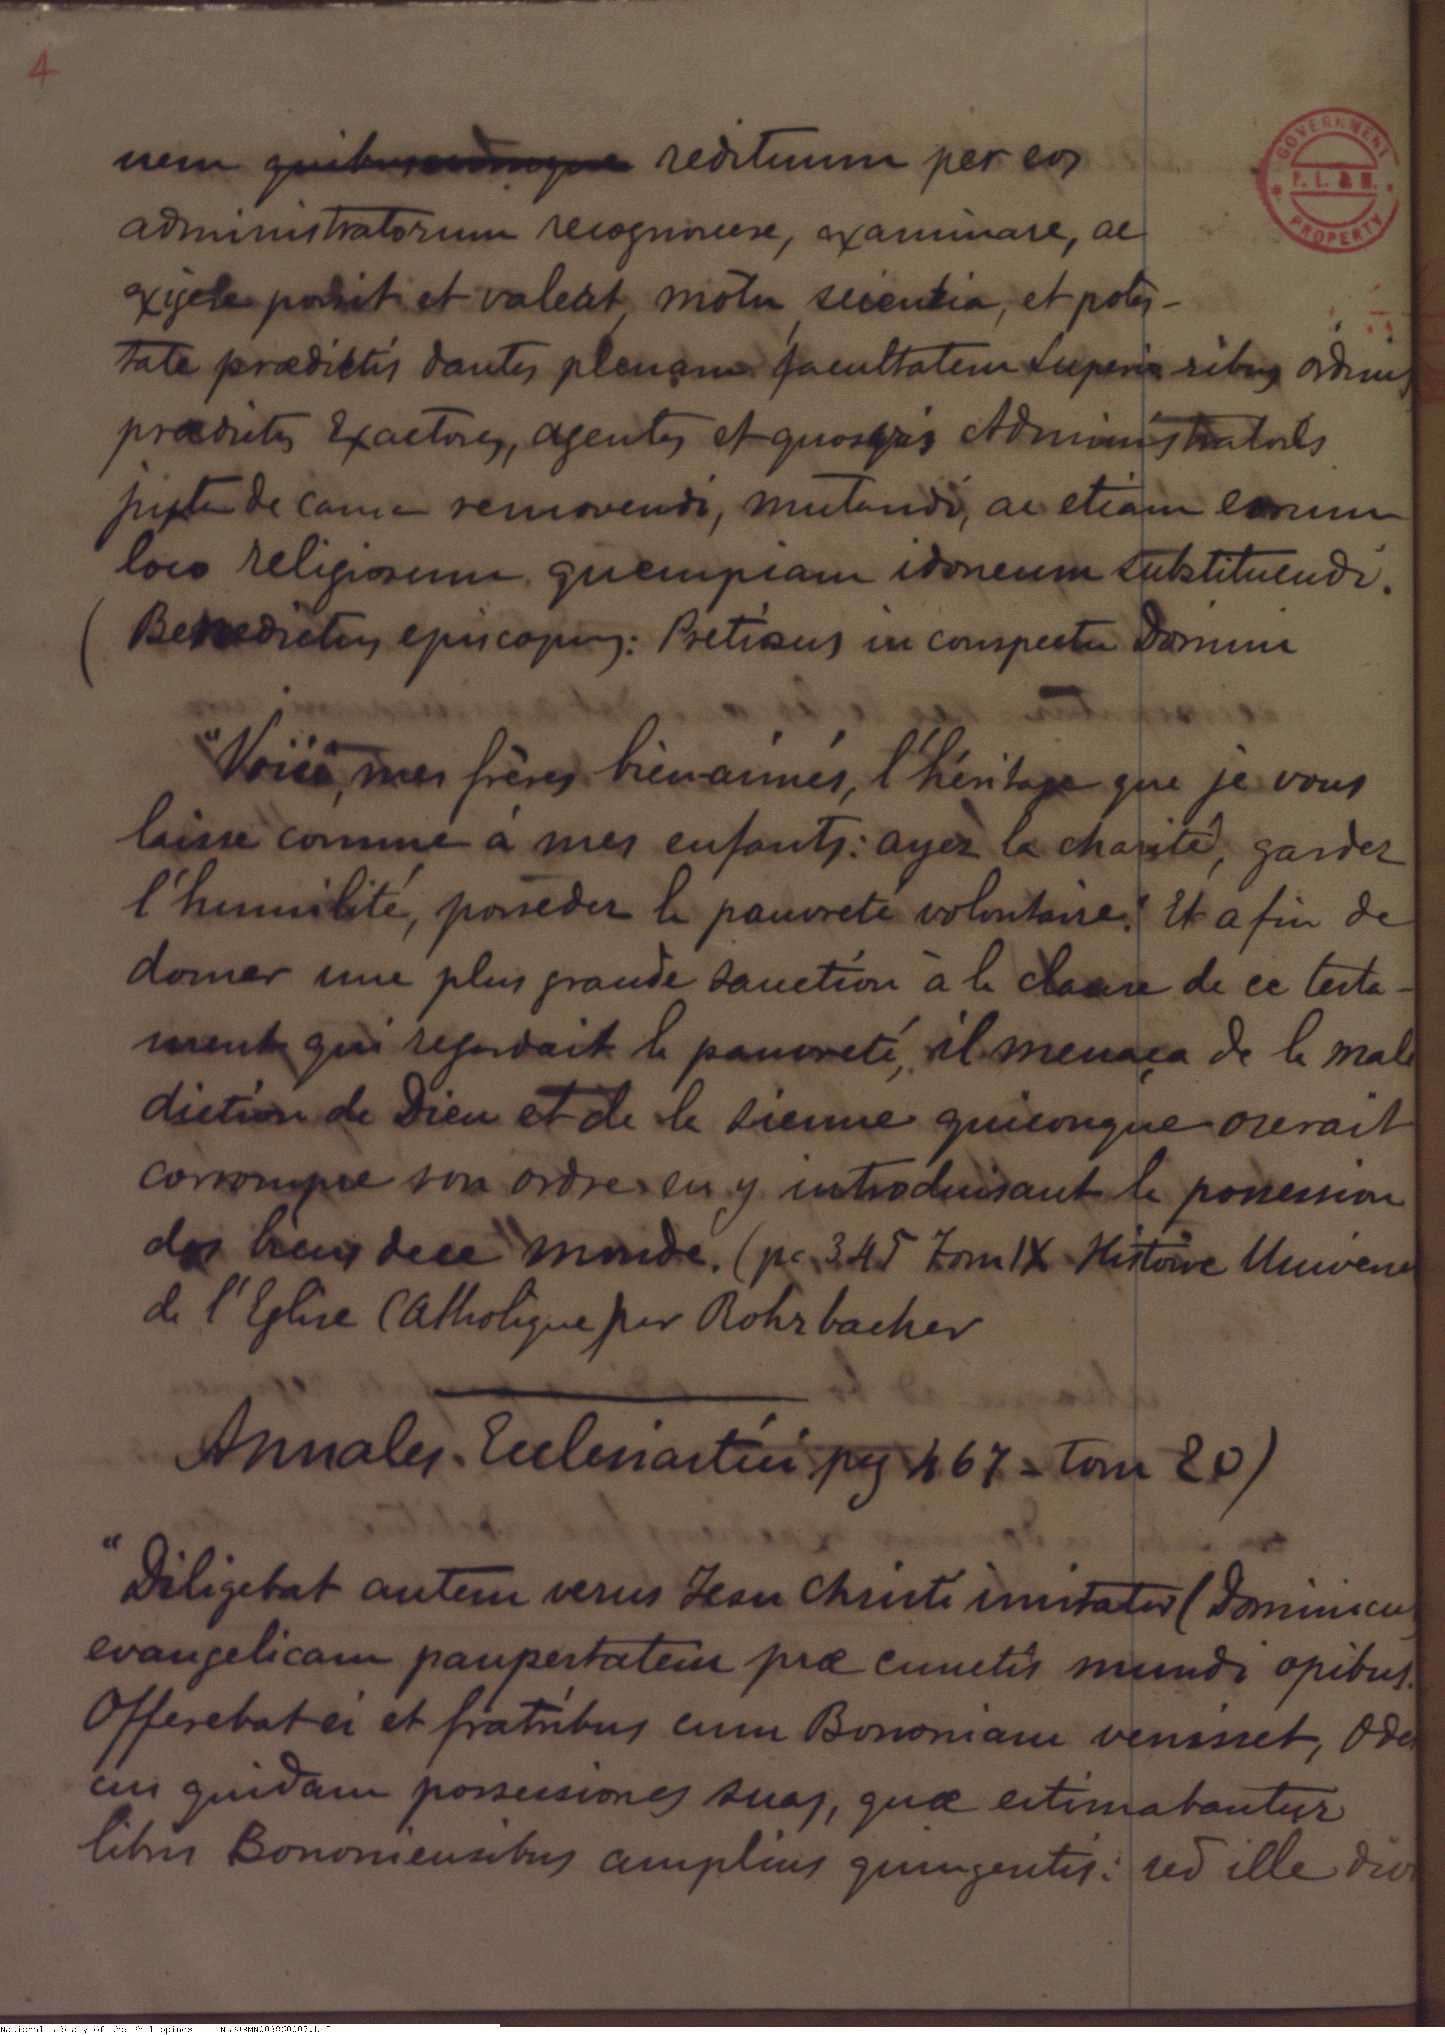 4
GOVERNMENT
P. L. & M.
PROPERTY
nem quibuscumque redituum per eos
administratorum recognoscere, examinare, ac
exigere possit et valeat, motu, scientia, et potes-
tate praedictis dantes plenam facultatem Superioribus ordinis
praedictis Exactores, agentes et quosvis Administratores
justa de causa removendi, mutandi, ac etiam eorum
loco religiosum quempiam idoneum substituendi.
(Benedictus episcopus: Pretiosus in conspectu Domini
"Voici, mes frères bien-aimés, l'héritage que je vous
laisse comme à mes enfants: ayez la charité, gardez
l'humilité, possedez la pauvreté volontaire." Et afin de
donner une plus grande sanction à la clause de ce testa-
ment qui regardait la pauvreté, il menaça de la malé
diction de Dieu et de la sienne quiconque oserait
corrompre son ordre en y introduisant la possession
des biens de ce monde. (pc 345 Tom IX Histoire Universe
de l'Eglise Catholique par Rohrbacher
Annales Eclesiastici pag 467 - tom 20)
"Diligebat autem verus Jesu Christi imitator (Dominicus
evangelicam paupertatem prae cunctis mundi opibus.
Offerebat ei et fratribus cum Bononiam venisset, Ode
cus quidam possessiones suas, quae estimabantur
libris Bononiensibus amplius quingentis: sed ille